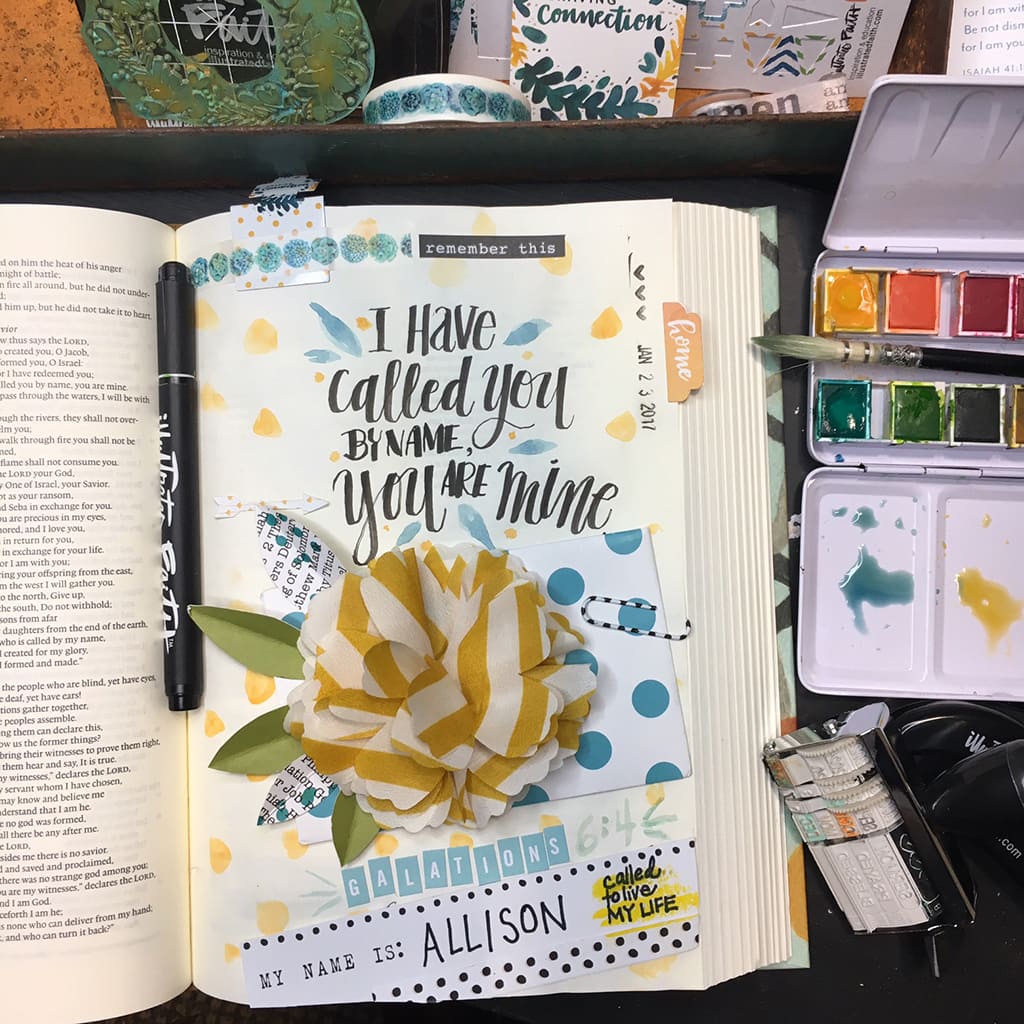 Faith
inspiration &
illustratedfaith.com
Connection
inspiration & education
illustratedfaith.com
for I am with
Be not dism
for I am you
ISAIAH 41:1
remember this
I Have
called you
BY NAME,
you ARE mine
home
JAN 2 3 2017
illustrated Faith
GALATIONS 6:4
MY NAME IS: ALLISON
called
to live
MY LIFE
ed on him the heat of his anger
night of battle;
on fire all around, but he did not under-
him up, but he did not take it to heart.
w thus says the LORD,
o created you, O Jacob,
ormed you, O Israel:
or I have redeemed you;
lled you by name, you are mine.
pass through the waters, I will be with
ough the rivers, they shall not over-
elm you;
walk through fire you shall not be
flame shall not consume you.
he LORD your God,
y One of Israel, your Savior.
pt as your ransom,
nd Seba in exchange for you.
ou are precious in my eyes,
nored, and I love you,
in return for you,
in exchange for your life.
or I am with you;
ring your offspring from the east,
om the west I will gather you.
to the north, Give up,
the south, Do not withhold;
sons from afar
daughters from the end of the earth,
who is called by my name,
I created for my glory,
I formed and made."
the people who are blind, yet have eyes,
e deaf, yet have ears!
tions gather together,
e peoples assemble.
ng them can declare this,
ow us the former things?
bring their witnesses to prove them right,
them hear and say, It is true.
my witnesses," declares the LORD,
y servant whom I have chosen,
may know and believe me
derstand that I am he.
e no god was formed,
all there be any after me.
LORD,
sides me there is no savior.
d and saved and proclaimed,
there was no strange god among you;
ou are my witnesses," declares the LORD,
nd I am God.
ceforth I am he;
is none who can deliver from my hand;
, and who can turn it back?"